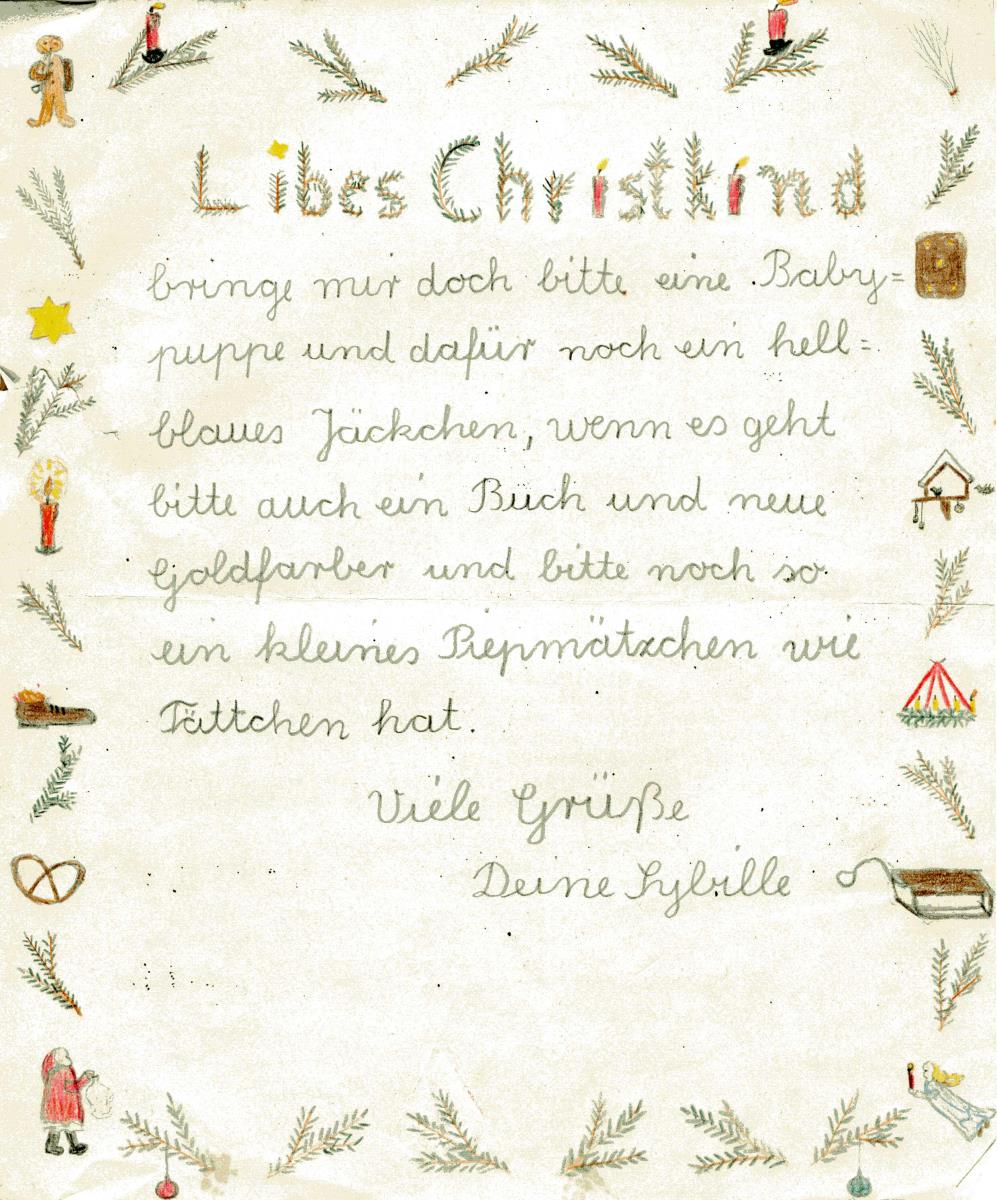 Libes Christkind
bringe mir doch bitte eine Baby=
puppe und dafür noch ein hell=
blaues Jäckchen, wenn es geht
bitte auch ein Buch und neue
Goldfarber und bitte noch so
ein kleines Piepmätzchen wie
Tättchen hat.
Viele Grüße
Deine Sybille